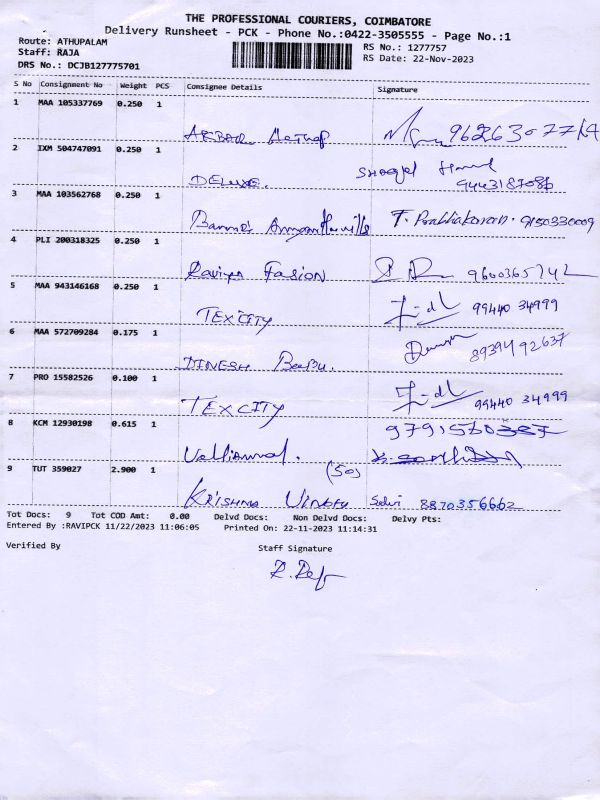 THE PROFESSIONAL COURIERS, COIMBATORE
Delivery Runsheet - PCK - Phone No.:0422-3505555 - Page No.:1
Route: ATHUPALAM
RS No.: 1277757
Staff: RAJA
RS Date: 22-Nov-2023
DRS No.: DCJB127775701
S No Consignment No Weight PCS Consignee Details Signature
1 MAA 105337769 0.250 1
2 IXM 504747091 0.250 1 DELUXE. 9443187086
3 MAA 103562768 0.250 1 T. Prabhakaran. 9150330009
4 PLI 200318325 0.250 1 Raviya Fasion 9600365742
5 MAA 943146168 0.250 1 TEXCITY 99440 34999
6 MAA 572709284 0.175 1 DINESH Babu. 8939492637
7 PRO 15582526 0.100 1 TEXCITY 99440 34999
8 KCM 12930198 0.615 1 Valliammal.
9 TUT 359027 2.900 1 (50) KRISHNA Selvi 8870356662
Tot Docs: 9 Tot COD Amt: 0.00 Delvd Docs: Non Delvd Docs: Delvy Pts:
Entered By :RAVIPCK 11/22/2023 11:06:05 Printed On: 22-11-2023 11:14:31
Verified By Staff Signature